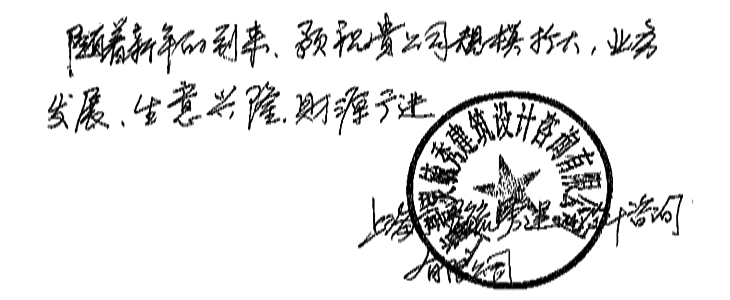 随着新年的到来、预祝贵公司规模扩大,业务
发展、生意兴隆.财源广进
毓秀建筑设计咨询有限公司
上海毓秀建筑设计咨询
有限公司